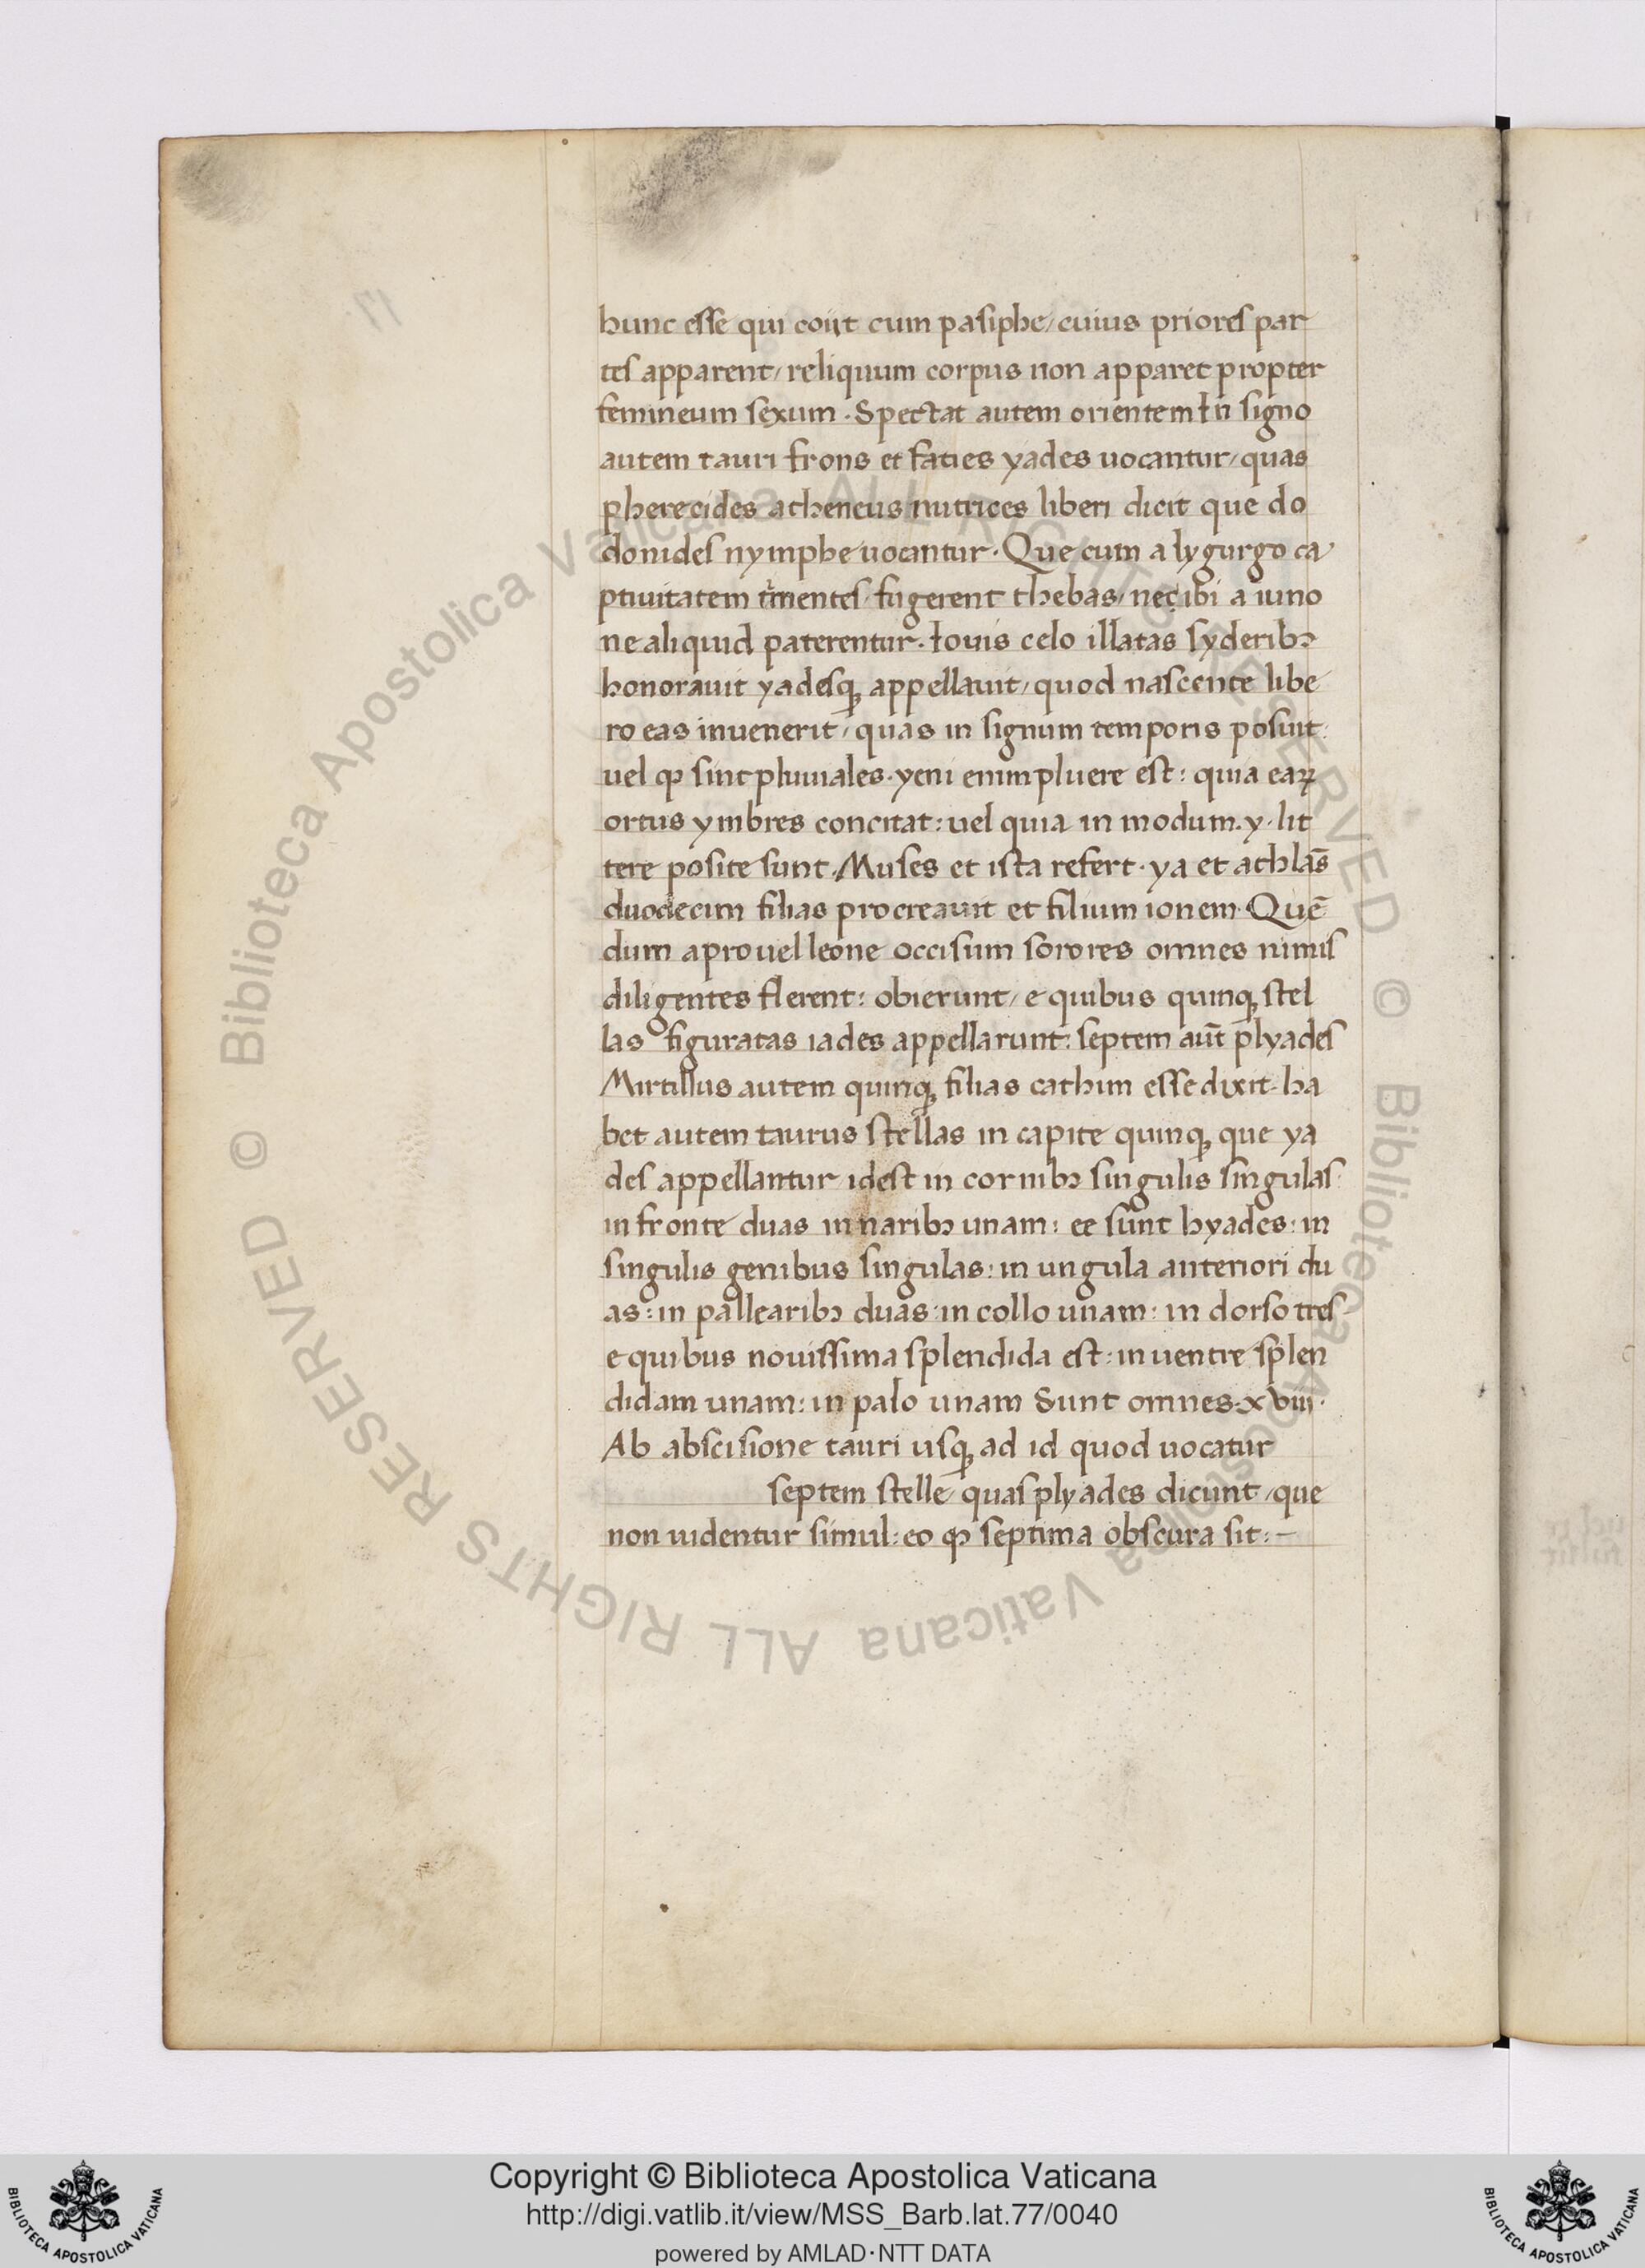 hunc esse qui coiit cum pasiphe / cuius priores par
tes apparent / reliquum corpus non apparet propter
femineum sexum · Spectat autem orientem In signo
autem tauri frons et faties yades uocantur / quas
pherecides atheneus nutrices liberi dicit que do
donides nymphe uocantur · Que cum a lygurgo ca
ptiuitatem timentes / fugerent thebas / ne ibi a iuno
ne aliquid paterentur · Iouis celo illatas syderibꝫ
honorauit yadesqꝫ appellauit / quod nascente libe
ro eas inuenerit / quas in signum temporis posuit ·
uel ꝙ sint pluuiales · yeni enim pluere est : quia eaꝝ
ortus ymbres concitat : uel quia in modum · y · lit
tere posite sunt · Muses et ista refert · ya et athlās
duodecim filias procreauit et filium ionem · Quē
dum apro uel leone occisum sorores omnes nimis
diligentes flerent : obierunt / e quibus quinqꝫ stel
las figuratas iades appellarunt : septem aut̄ plyades
Mirtillus autem quinqꝫ filias cathim esse dixit · ha
bet autem taurus stellas in capite quinqꝫ que ya
des appellantur idest in cornibꝫ singulis singulas ·
in fronte duas in naribꝫ unam : ee sunt hyades : in
singulis genibus singulas : in ungula anteriori du
as : in pallearibꝫ duas : in collo unam : in dorso tres
e quibus nouissima splendida est : in uentre splen
didam unam : in palo unam Sunt omnes · xviii ·
Ab abscisione tauri usqꝫ ad id quod uocatur
septem stelle quas plyades dicunt / que
non uidentur simul : eo ꝙ septima obscura sit : –
© Biblioteca Apostolica Vaticana ALL RIGHTS RESERVED © Biblioteca Apostolica Vaticana ALL RIGHTS RESERVED
Copyright © Biblioteca Apostolica Vaticana
http://digi.vatlib.it/view/MSS_Barb.lat.77/0040
powered by AMLAD·NTT DATA
BIBLIOTECA APOSTOLICA VATICANA
BIBLIOTECA APOSTOLICA VATICANA